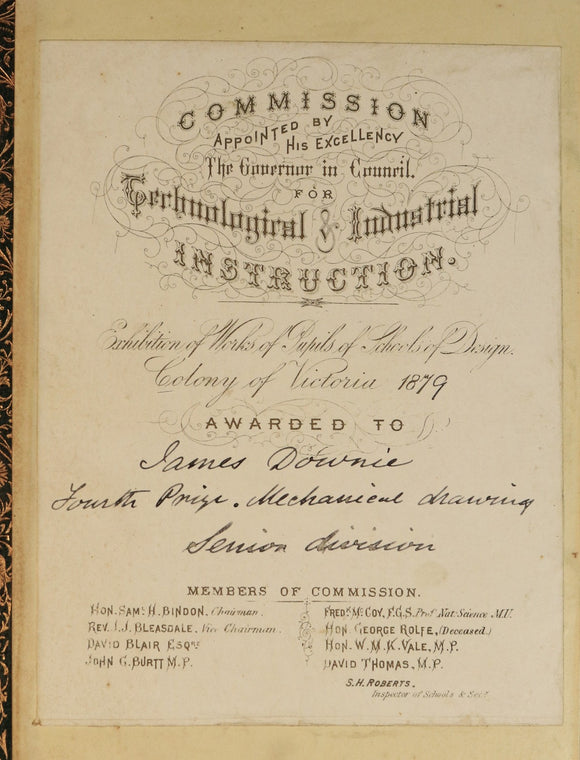 COMMISSION
APPOINTED BY
HIS EXCELLENCY
The Governor in Council.
FOR
Technological & Industrial
INSTRUCTION.
Exhibition of Works of Pupils of Schools of Design.
Colony of Victoria 1879
AWARDED TO
James Downie
Fourth Prize. Mechanical drawing
Senior division
MEMBERS OF COMMISSION.
HON. SAML. H. BINDON, Chairman.
REV. J. J. BLEASDALE, Vice Chairman.
DAVID BLAIR ESQRE
JOHN G. BURTT M.P.
FREDK. MC. COY, F.G.S. Prof. Nat. Science M.U.
HON. GEORGE ROLFE, (Deceased.)
HON. W. M. K. VALE, M.P.
DAVID THOMAS, M.P.
S. H. ROBERTS,
Inspector of Schools & Secy.